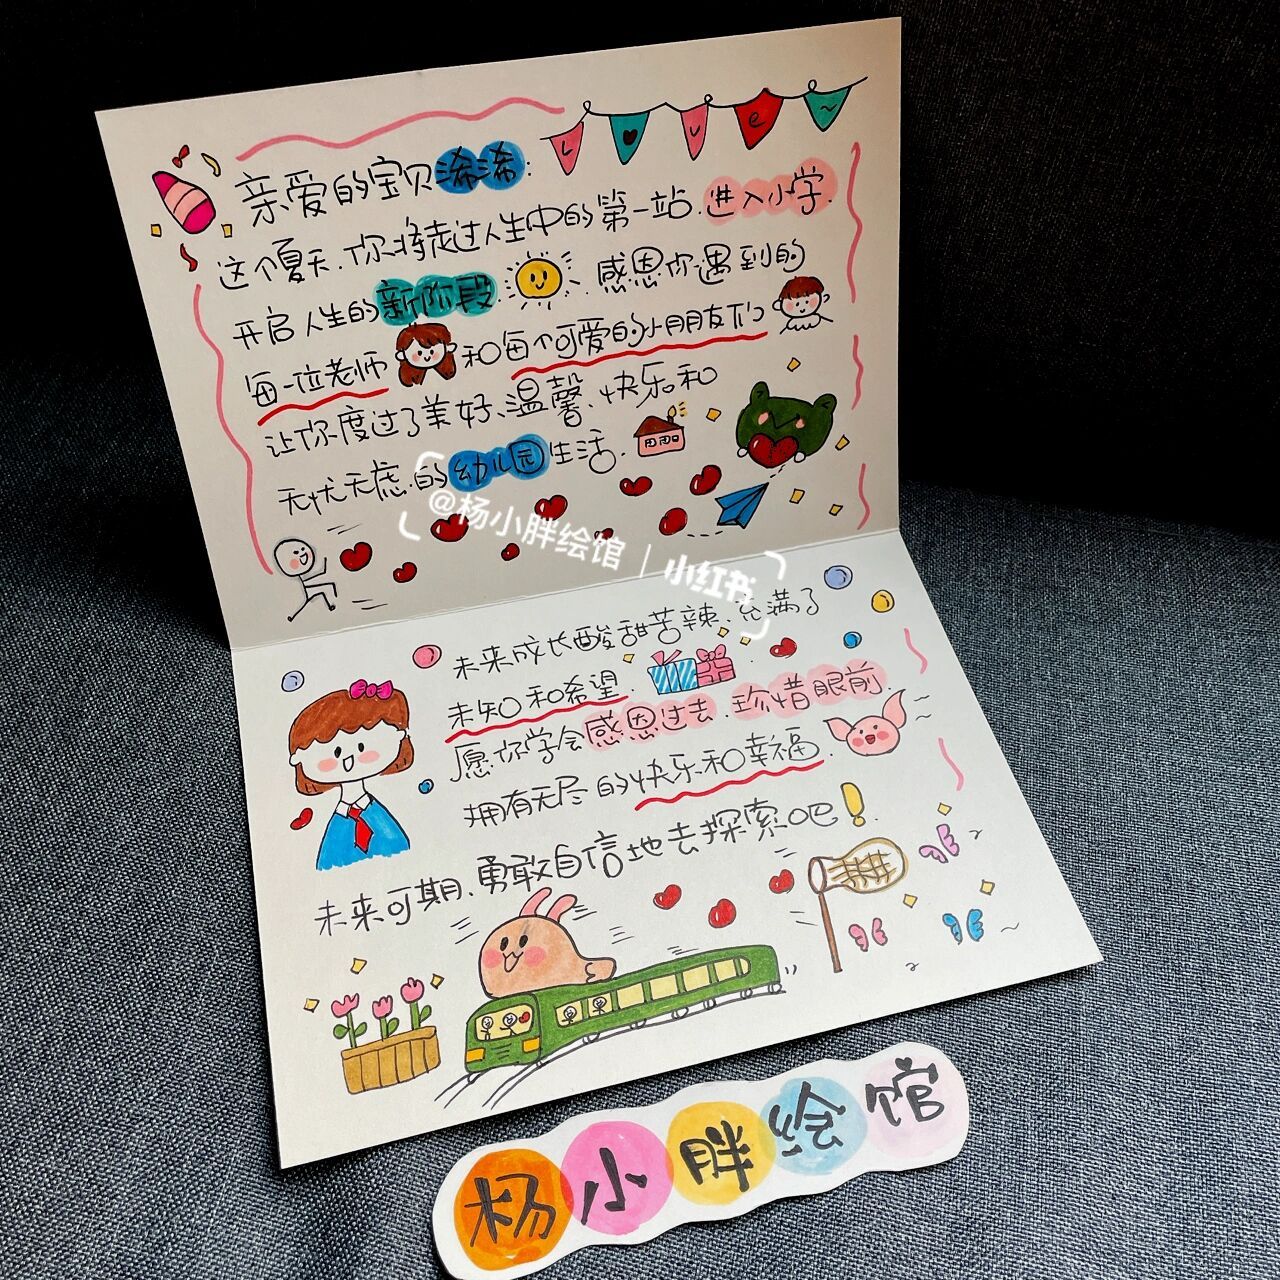 Love~
亲爱的宝贝浠浠:
这个夏天.你将走过人生中的第一站.进入小学.
开启人生的新阶段. 感恩你遇到的
每一位老师 和每个可爱的小朋友们
让你度过了美好、温馨、快乐和
无忧无虑.的幼儿园生活.
@杨小胖绘馆 | 小红书
未来成长酸甜苦辣.充满了
未知和希望.
愿你学会感恩过去.珍惜眼前.
拥有无尽的快乐和幸福.
未来可期.勇敢自信地去探索吧!
杨小胖绘馆